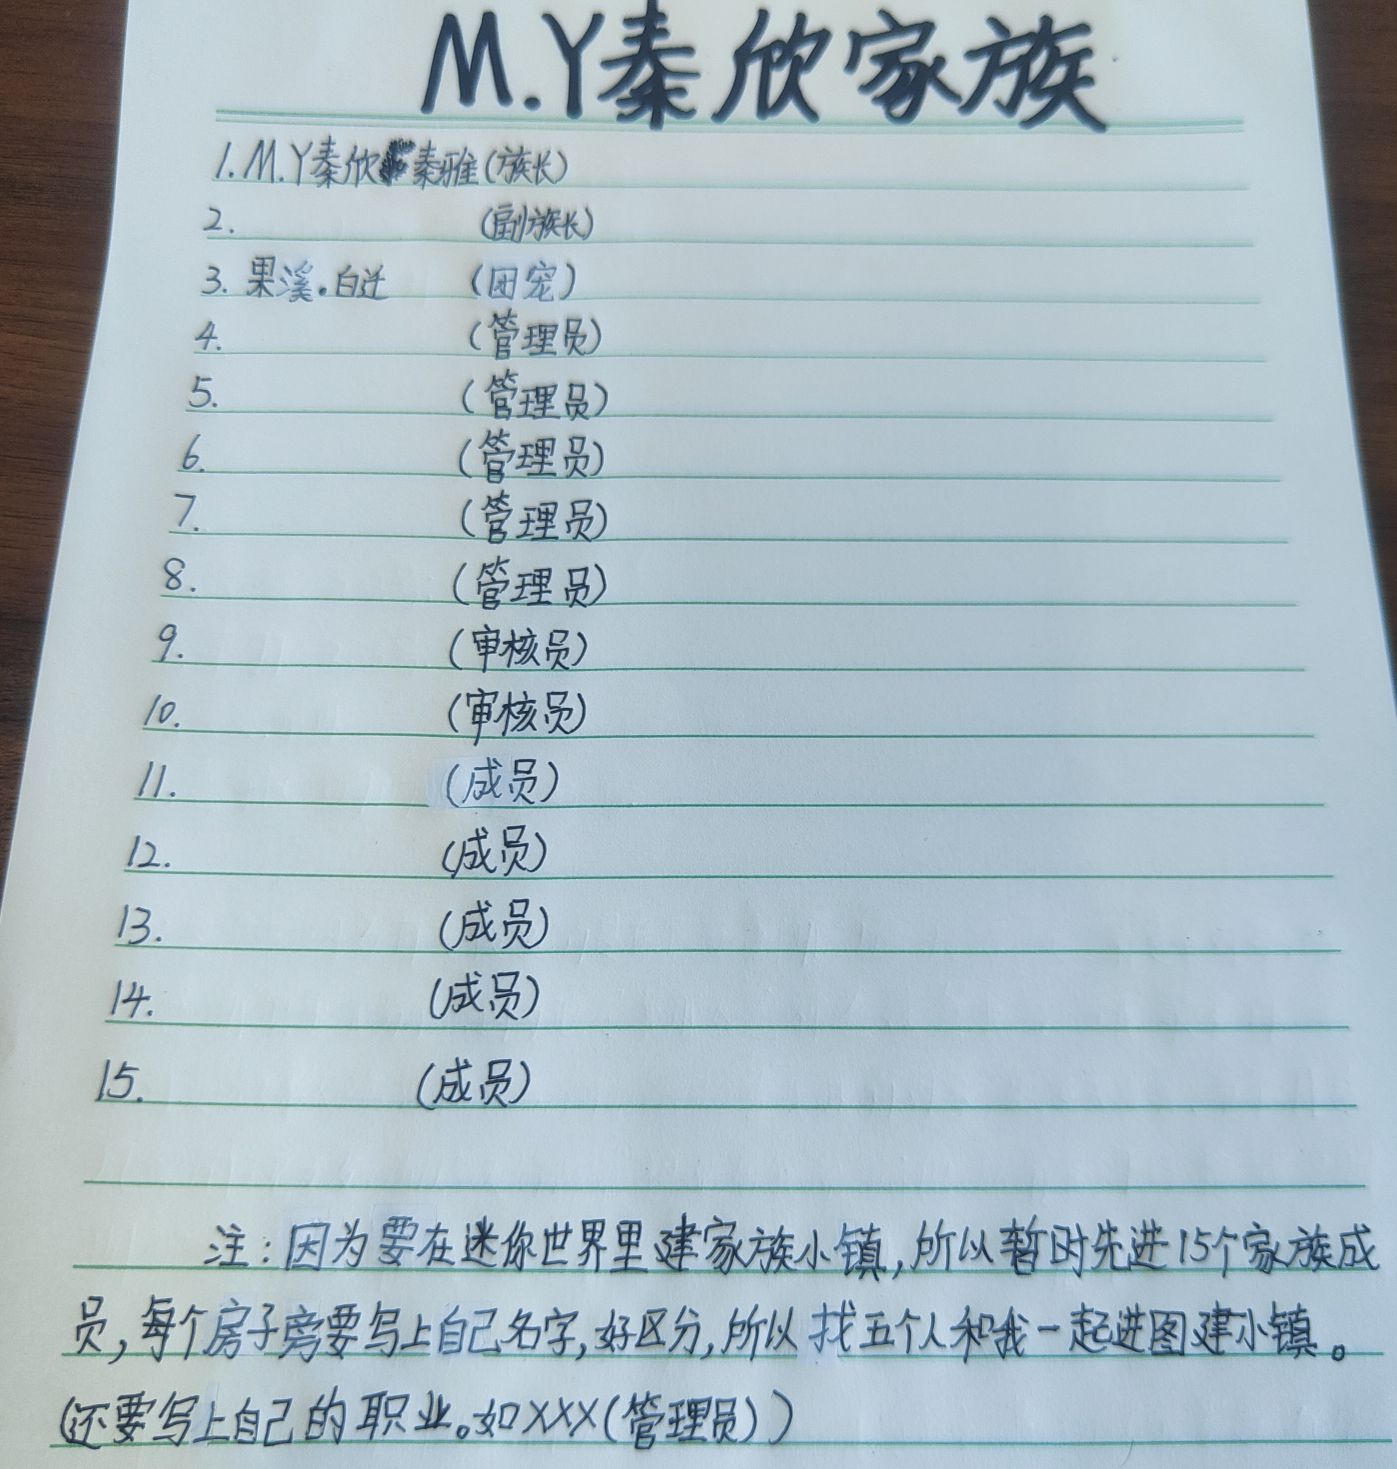 M.Y秦欣家族
1.M.Y秦欣 秦雅(族长)
2. (副族长)
3. 果溪.白迁 (团宠)
4. (管理员)
5. (管理员)
6. (管理员)
7. (管理员)
8. (管理员)
9. (审核员)
10. (审核员)
11. (成员)
12. (成员)
13. (成员)
14. (成员)
15. (成员)
注:因为要在迷你世界里建家族小镇,所以暂时先进15个家族成
员,每个房子旁要写上自己名字,好区分,所以找五个人和我一起进图建小镇。
(还要写上自己的职业。如XXX(管理员))